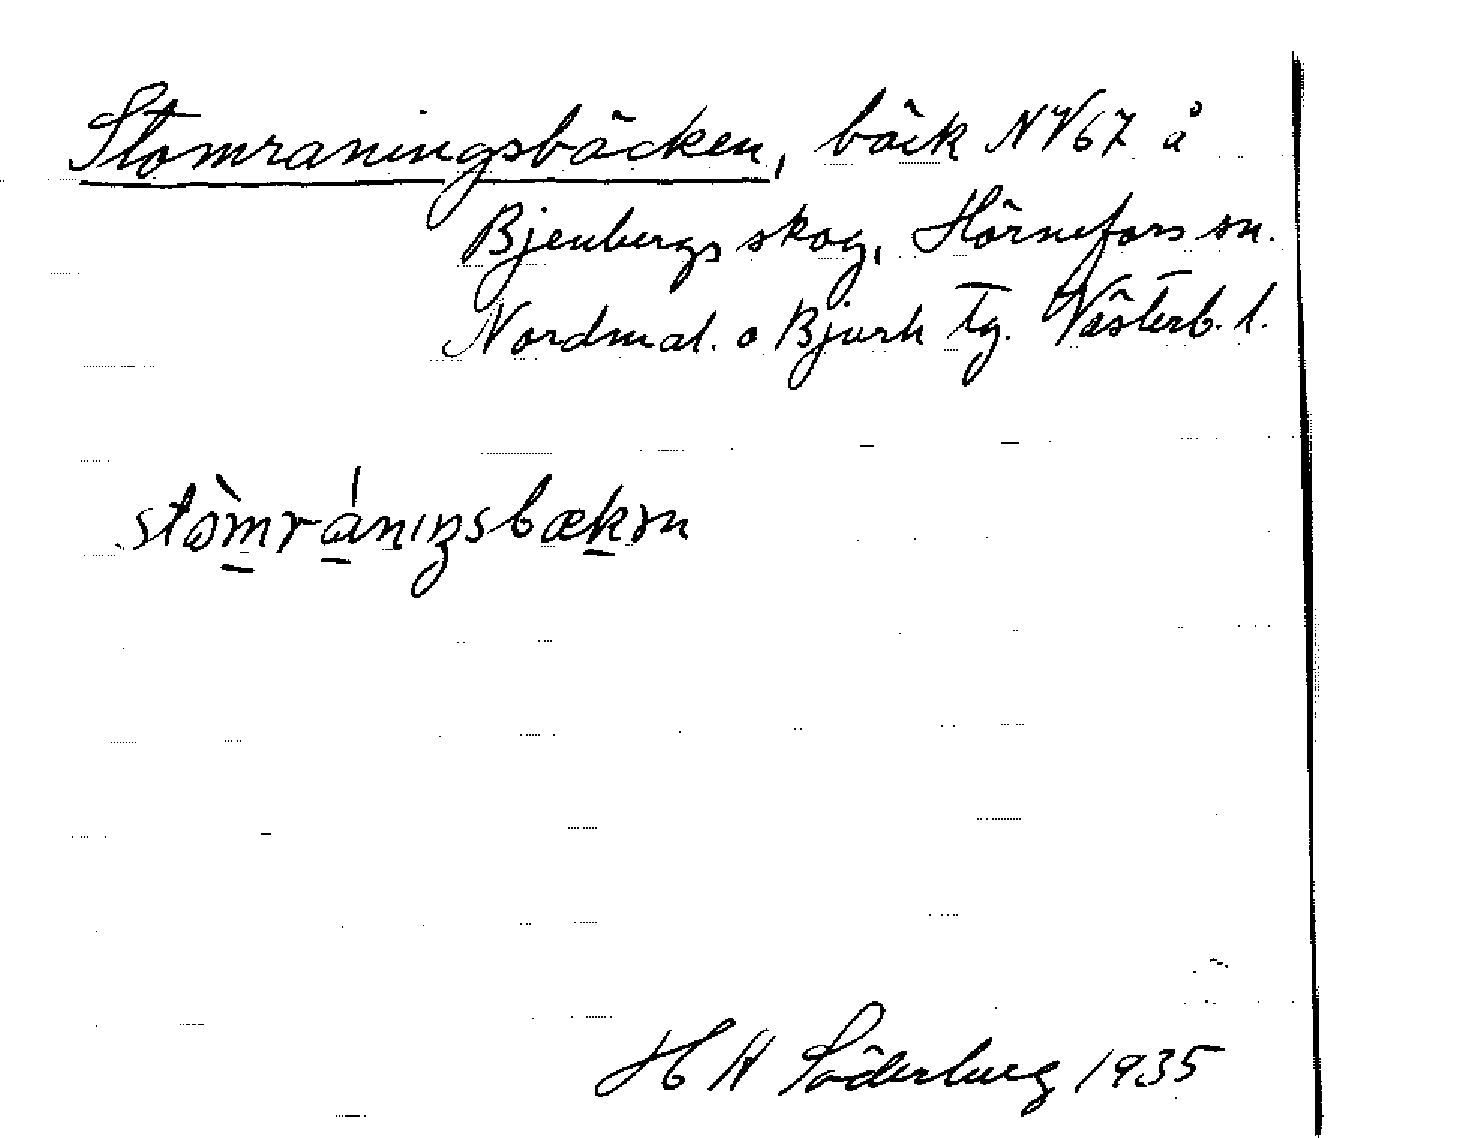 Stomraningsbäcken, bäck NV67 å
Bjenbergs skog, Hörnefors sn.
Nordmal. o Bjurh Tg. Västerb. l.
stòmrániŋsbækɤn
H A Söderberg 1935